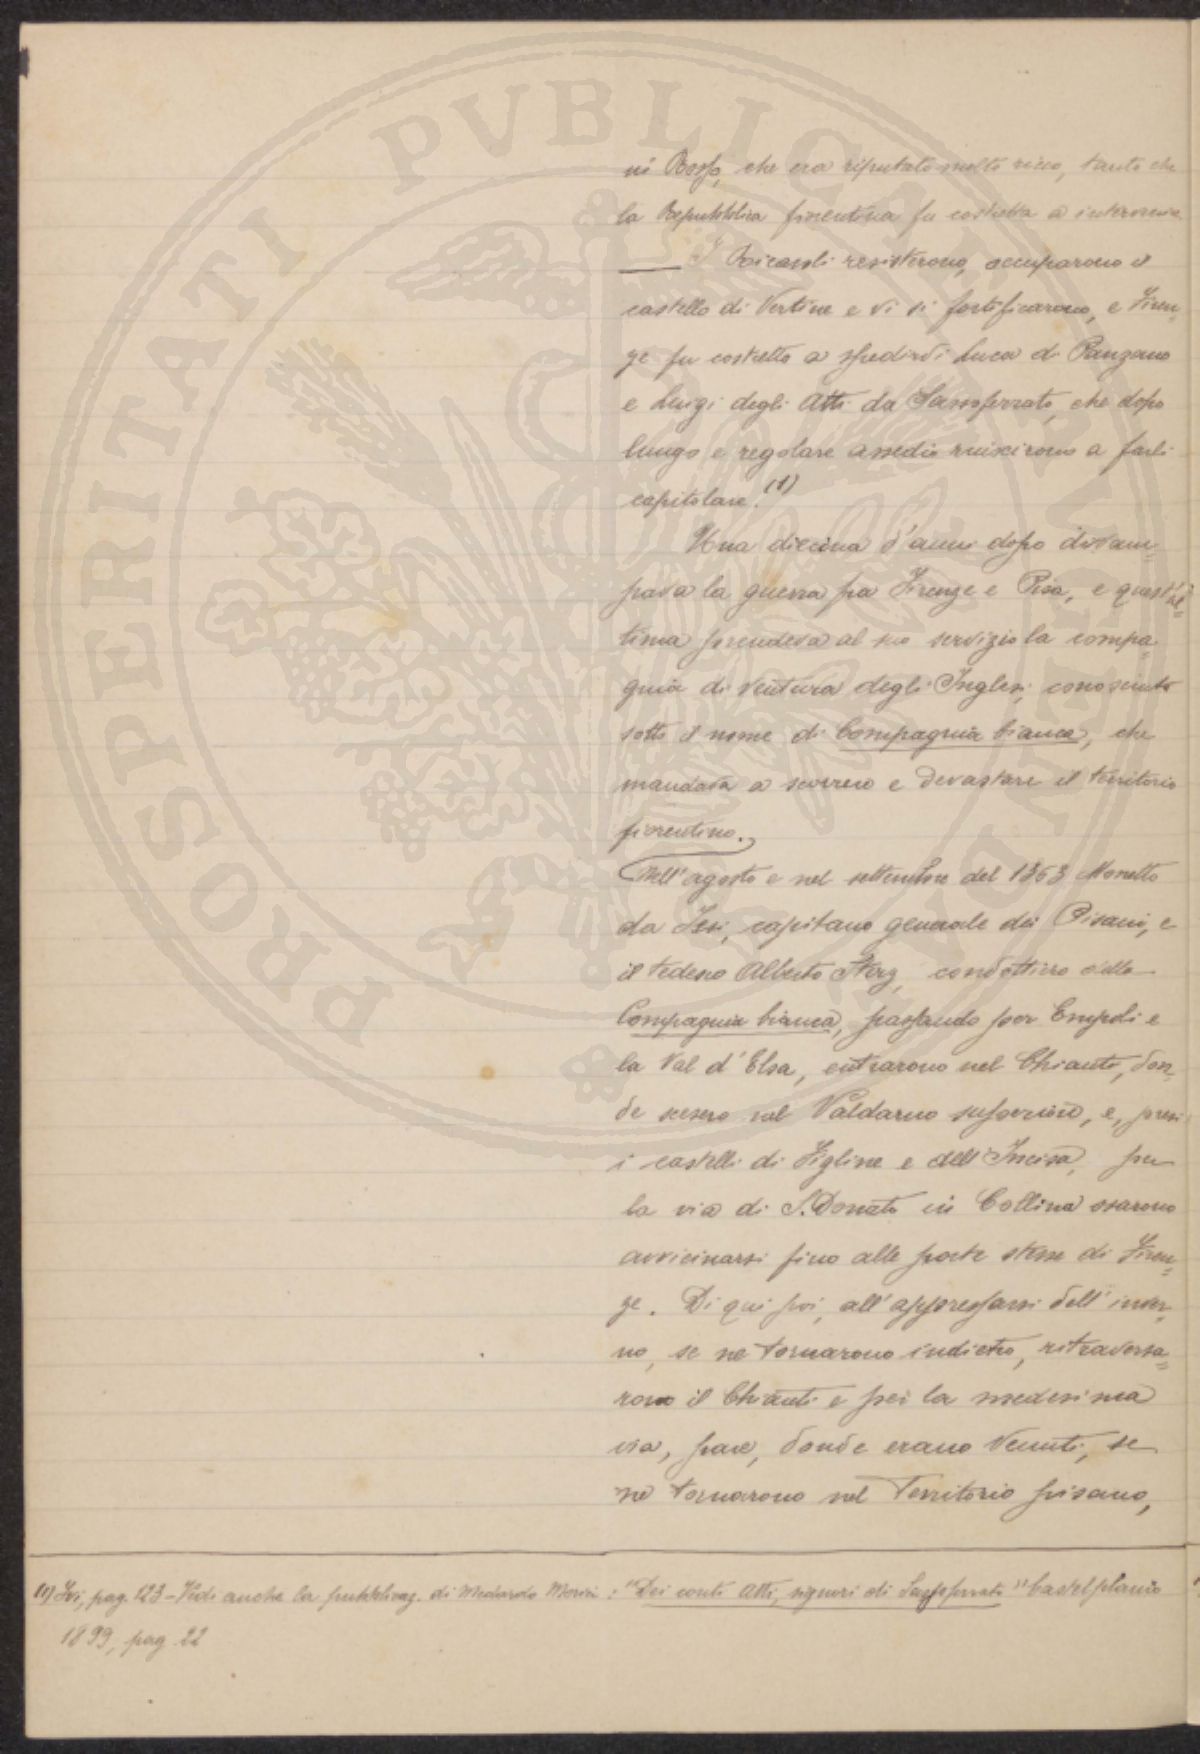 ni Rosso, che era riputato molto ricco, tanto che
la Repubblica fiorentina fu costretta a intervenire
I Ricasoli resisterono, occuparono il
castello di Vertine e vi si fortificarono, e Firen-
ze fu costretta a spedirvi Luca di Panzano
e Luigi degli Atti da Sassoferrato, che dopo
lungo e regolare assedio riuscirono a farli
capitolare. (1)
Una diecina d'anni dopo divam-
pava la guerra fra Firenze e Pisa, e quest'ul-
tima prendeva al suo servizio la compa-
gnia di ventura degli Inglesi, conosciuta
sotto il nome di Compagnia bianca, che
mandava a scorrere e devastare il territorio
fiorentino.
Nell'agosto e nel settembre del 1363 Monetto
da Jesi, capitano generale dei Pisani, e
il tedesco Alberto Sterz, condottiero della
Compagnia bianca, passando per Empoli e
la Val d'Elsa, entrarono nel Chianti, don-
de scesero nel Valdarno superiore, e, presi
i castelli di Figline e dell'Incisa, per
la via di S. Donato in Collina osarono
avvicinarsi fino alle porte stesse di Firen-
ze. Di qui poi, all'appressarsi dell'inver-
no, se ne tornarono indietro, ritraversa-
rono il Chianti e per la medesima
via, pare, donde erano venuti, se
ne tornarono nel territorio pisano,
(1) Ivi, pag. 123 - Vedi anche la pubblicaz. di Medardo Morici: "Dei conti Atti, signori di Sassoferrato" Castelplanio
1899, pag 22
PROSPERITATI PVBLICAE AVGENDAE